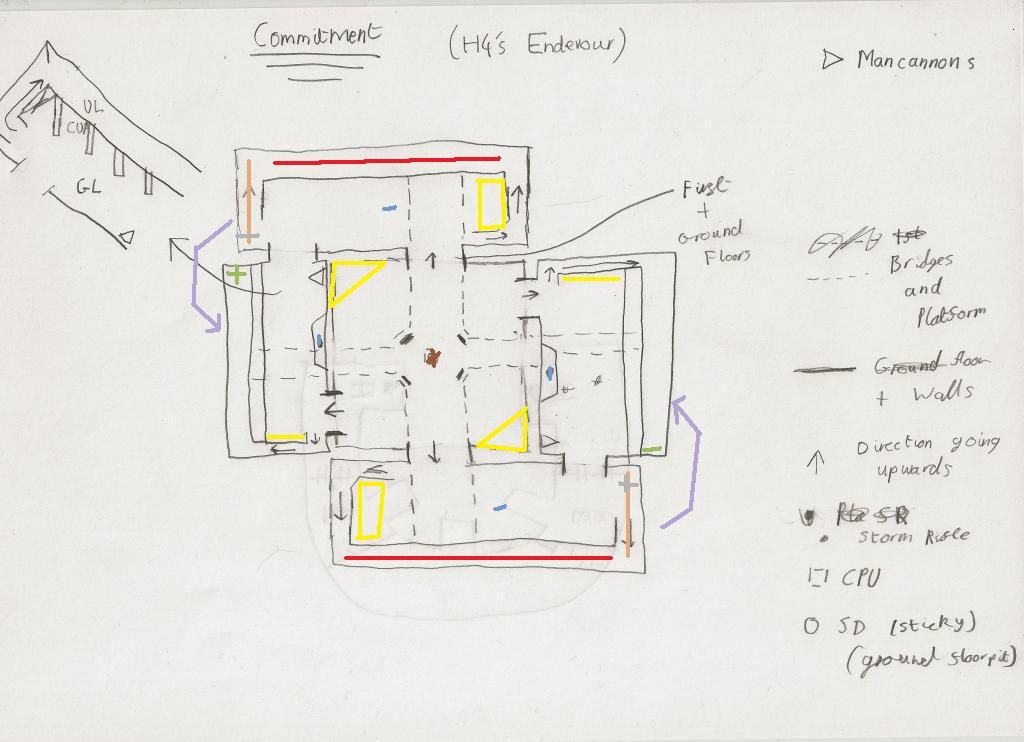 Commitment
(H4's Endevour)
Mancannons
UL
GL
First
+
Ground
Floors
1st
Bridges
and
Platform
Ground floor
+ Walls
Direction going
upwards
SR
Storm Rifle
CPU
SD (sticky)
(ground floor pit)